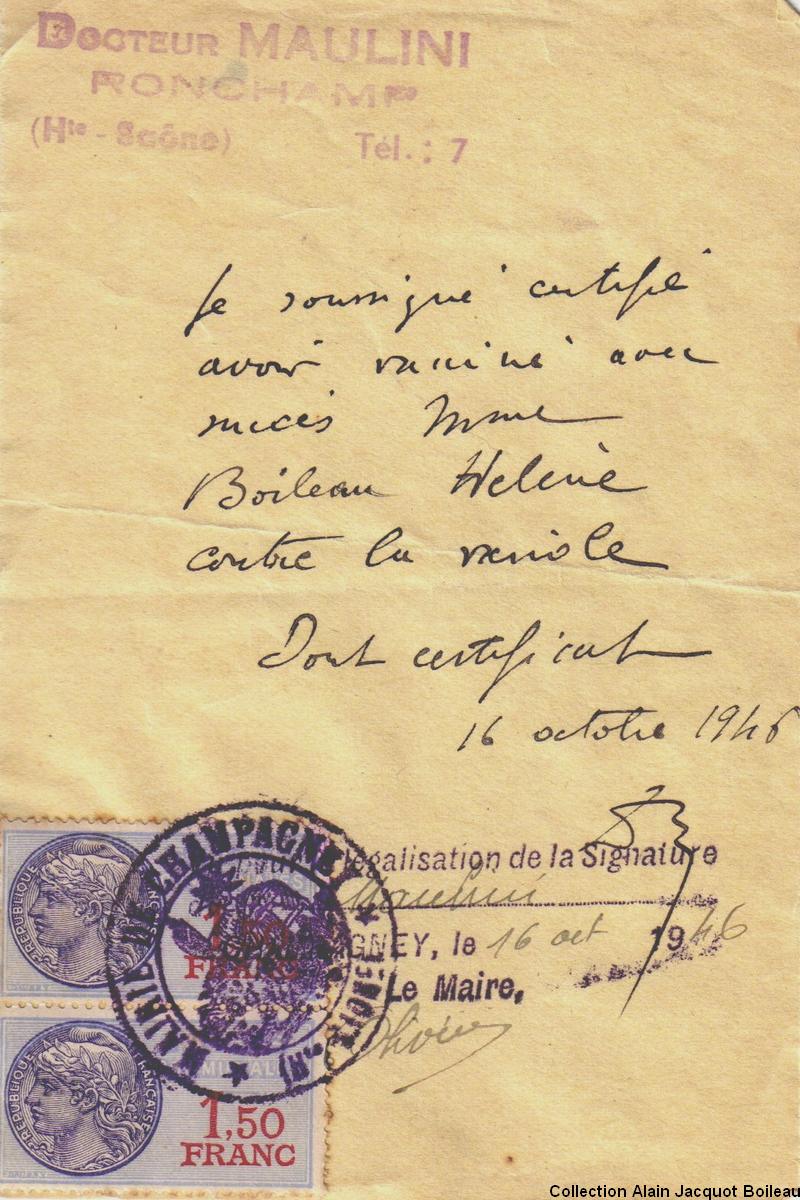 DOCTEUR MAULINI
RONCHAMP
(Hte - Saône) Tél. : 7
Je soussigné certifie
avoir vacciné avec
succès Mme
Boileau Helène
contre la variole
Dont certificat
16 octobre 1946
légalisation de la Signature
Maulini
GNEY, le 16 oct 1946
Le Maire,
MAIRIE DE CHAMPAGNEY
RÉPUBLIQUE
1,50
FRANC
RÉPUBLIQUE FRANÇAISE
1,50
FRANC
Collection Alain Jacquot Boileau